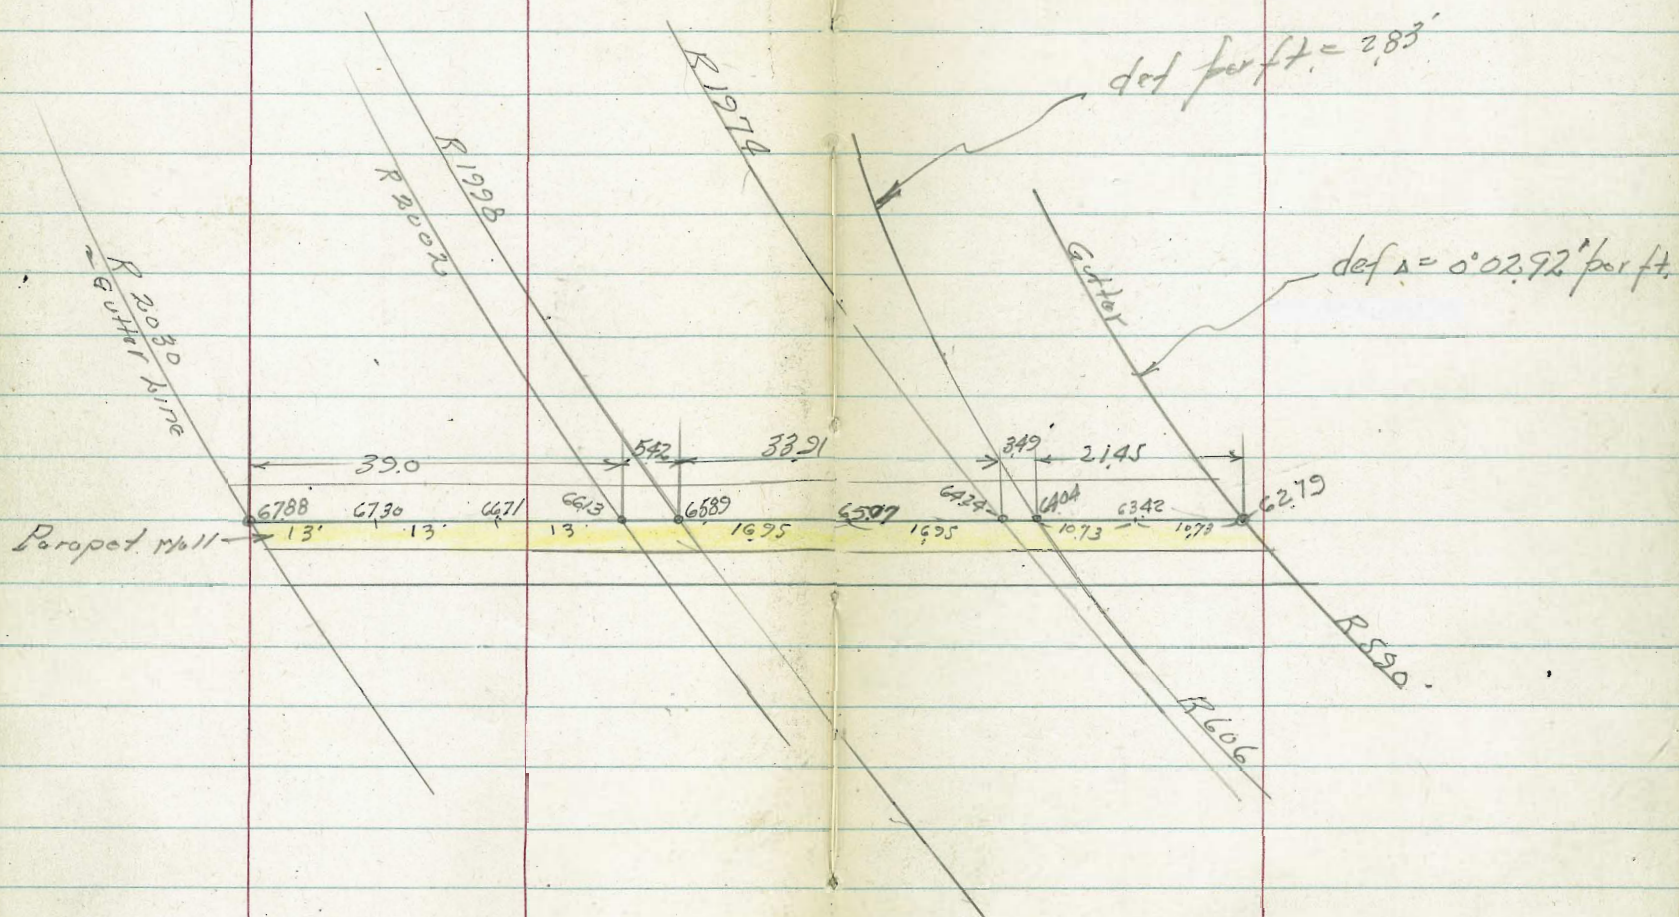 def per ft. = 2.83'
R 1974
R 1998
R 2002
Gutter
def Δ = 0°02.92'/per ft.
R 2030
= Gutter Line
39.0
5.42
33.91
3.49
21.45
67.88
67.30
66.71
66.13
65.89
65.07
64.24
64.04
63.42
62.79
Parapet Wall
13'
13'
13
16.95
16.95
10.73
10.73
R 590
R 606